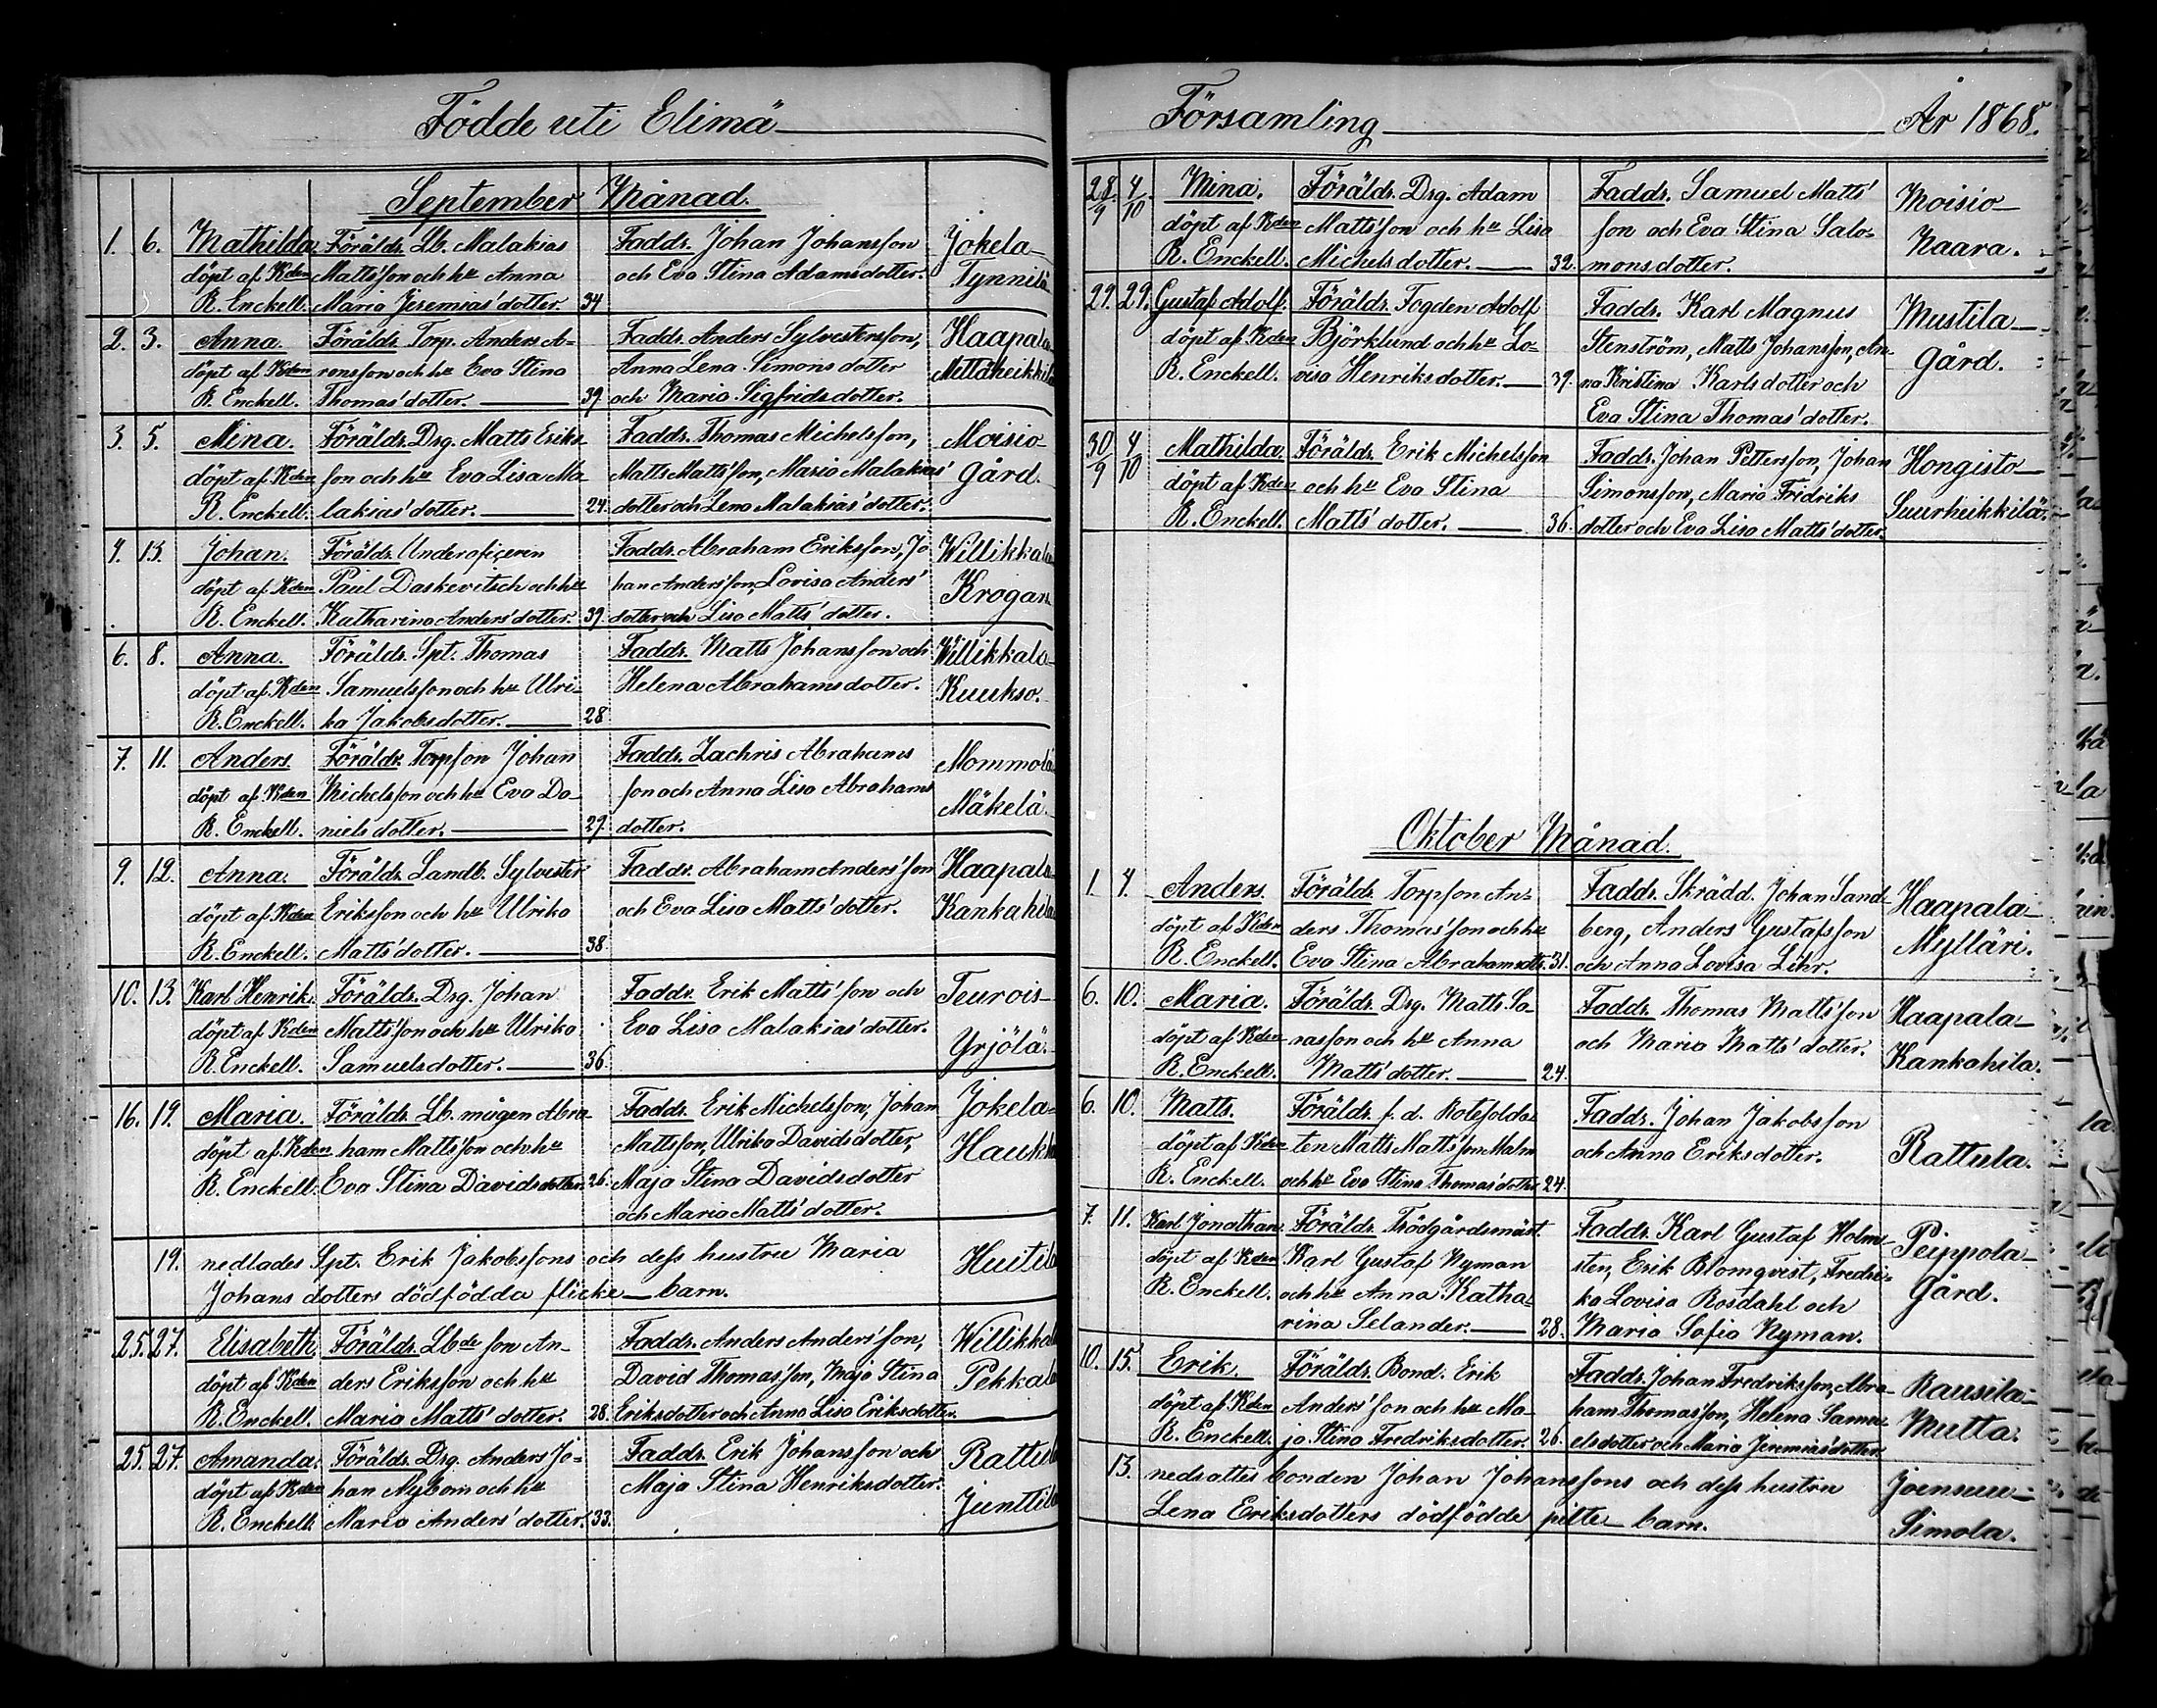 Födde uti Elimä
September Månad.
1. 6. Mathilda Föräldr. Lb. Malakias Faddr. Johan Johansson Jokela-
döpt af Kden Matts'son och hu Anna och Eva Stina Adamsdotter. Tynnilä
R. Enckell. Maria Jeremias'dotter. 34
2. 3. Anna. Föräldr. Torp. Anders A- Faddr. Anders Sylvestersson, Haapala-
döpt af Kden ronsson och hu Eva Stina Anna Lena Simonsdotter Mettäheikkilä
R. Enckell. Thomas'dotter. 39. och Maria Sigfridsdotter.
3. 5. Mina. Föräldr. Drg. Matts Eriks- Faddr. Thomas Michelsson, Moisio
döpt af Kden son och hu Eva Lisa Ma- Matts Matts'son, Maria Malakias' gård.
R. Enckell. lakias'dotter. 24. dotter och Lena Malakias'dotter.
4. 13. Johan. Föräldr. Underofiçeren Faddr. Abraham Eriksson, Jo Willikkala
döpt af Kden Paul Daskevitsch och hu han Anders'son, Lovisa Anders' Krogan
R. Enckell. Katharina Anders'dotter. 39. dotter och Lisa Matts'dotter.
6. 8. Anna. Föräldr. Spt. Thomas Faddr. Matts Johansson och Willikkala-
döpt af Kden Samuelsson och hu Ulri- Helena Abrahamsdotter. Kuukso.
R. Enckell. ka Jakobsdotter. 28
7. 11. Anders Föräldr. Torpson Johan Faddr. Zachris Abrahams Mommola
döpt af Kden Michelsson och hu Eva Da- son och Anna Lisa Abrahams Mäkelä.
R. Enckell. nielsdotter. 27. dotter.
9. 12. Anna. Föräldr. Landb. Sylvester Faddr. Abraham Anders'son Haapala-
döpt af Kden Eriksson och hu Ulrika och Eva Lisa Matts'dotter. Kankahila
R. Enckell. Matts'dotter. 38.
10. 13. Karl Henrik. Föräldr. Drg. Johan Faddr. Erik Matts'son och Teurois-
döpt af Kden Matts'son och hu Ulrika Eva Lisa Malakias'dotter. Yrjölä.
R. Enckell. Samuelsdotter. 36.
16. 19. Maria. Föräldr. Lb. mågen Abra- Faddr. Erik Michelsson, Johan Jokela-
döpt af Kden ham Matts'son och hu Mattsson, Ulrika Davidsdotter, Haukka
R. Enckell. Eva Stina Davidsdotter. 26. Maja Stina Davidsdotter
och Maria Matts'dotter.
19. nedlades Spt. Erik Jakobssons och dess hustru Maria Huitila
Johansdotters dödfödda flicke-barn.
25. 27. Elisabeth Föräldr. Lbde son An- Faddr. Anders Anders'son, Willikkala
döpt af Kden ders Eriksson och hu David Thomas'son, Maja Stina Pekkala
R. Enckell. Maria Matts'dotter. 28. Eriksdotter och Anna Lisa Eriksdotter.
25. 27. Amanda. Föräldr. Drg. Anders Jo= Faddr. Erik Johansson och Rattula
döpt af Kden han Nybom och hu Maja Stina Henriksdotter. Junttila
R. Enckell. Maria Anders'dotter. 33.
Församling År 1868.
28/9 4/10 Mina. Föräldr. Drg. Adam Faddr. Samuel Matts' Moisio-
döpt af Kden Matts'son och hu Lisa son och Eva Stina Salo= Naara.
R. Enckell. Michelsdotter. 32. monsdotter.
29. 29. Gustaf Adolf. Föräldr. Fogden Adolf Faddr. Karl Magnus Mustila-
döpt af Kden Björklund och hu Lo= Stenström, Matts Johansson, An- gård.
R. Enckell. visa Henriksdotter. 39. na Kristina Karlsdotter och
Eva Stina Thomas'dotter.
30/9 4/10 Mathilda. Föräldr. Erik Michelsson Faddr. Johan Pettersson, Johan Hongisto-
döpt af Kden och hu Eva Stina Simonsson, Maria Fridriks Suurheikkilä.
R. Enckell. Matts'dotter. 36. dotter och Eva Lisa Matts'dotter.
Oktober Månad.
1. 4. Anders. Föräldr. Torpson An= Faddr. Skrädd. Johan Sand- Haapala-
döpt af Kden ders Thomas'son och hu berg, Anders Gustafsson Mylläri.
R. Enckell. Eva Stina Abrahamsdtr. 31. och Anna Lovisa Lihr.
6. 10. Maria. Föräldr. Drg. Matts Jo- Faddr. Thomas Matts'son Haapala-
döpt af Kden nasson och hu Anna och Maria Matts'dotter. Kankahila.
R. Enckell. Matts'dotter. 24.
6. 10. Matts. Föräldr. f. d. Rotesolda- Faddr. Johan Jakobsson Rattula.
döpt af Kden ten Matts Matts'son Malm och Anna Eriksdotter.
R. Enckell. och hu Eva Stina Thomas'dotter 24.
7. 11. Karl Jonathan. Föräldr. Trädgårdsmäst. Faddr. Karl Gustaf Holm- Peippola-
döpt af Kden Karl Gustaf Nyman sten, Erik Blomqvist, Fredri- gård.
R. Enckell. och hu Anna Katha- ka Lovisa Rosdahl och
rina Selander. 28. Maria Sofia Nyman.
10. 15. Erik. Föräldr. Bond. Erik Faddr. Johan Fredriksson, Abra- Rausila-
döpt af Kden Anders'son och hu Ma- ham Thomas'son, Helena Samu- Mutta.
R. Enckell. ja Stina Fredriksdotter. 26. elsdotter och Maria Jeremias'dotter.
13. nedsattes bonden Johan Johanssons och dess hustru Joensuu-
Lena Eriksdotters dödfödde pilte-barn. Simola.